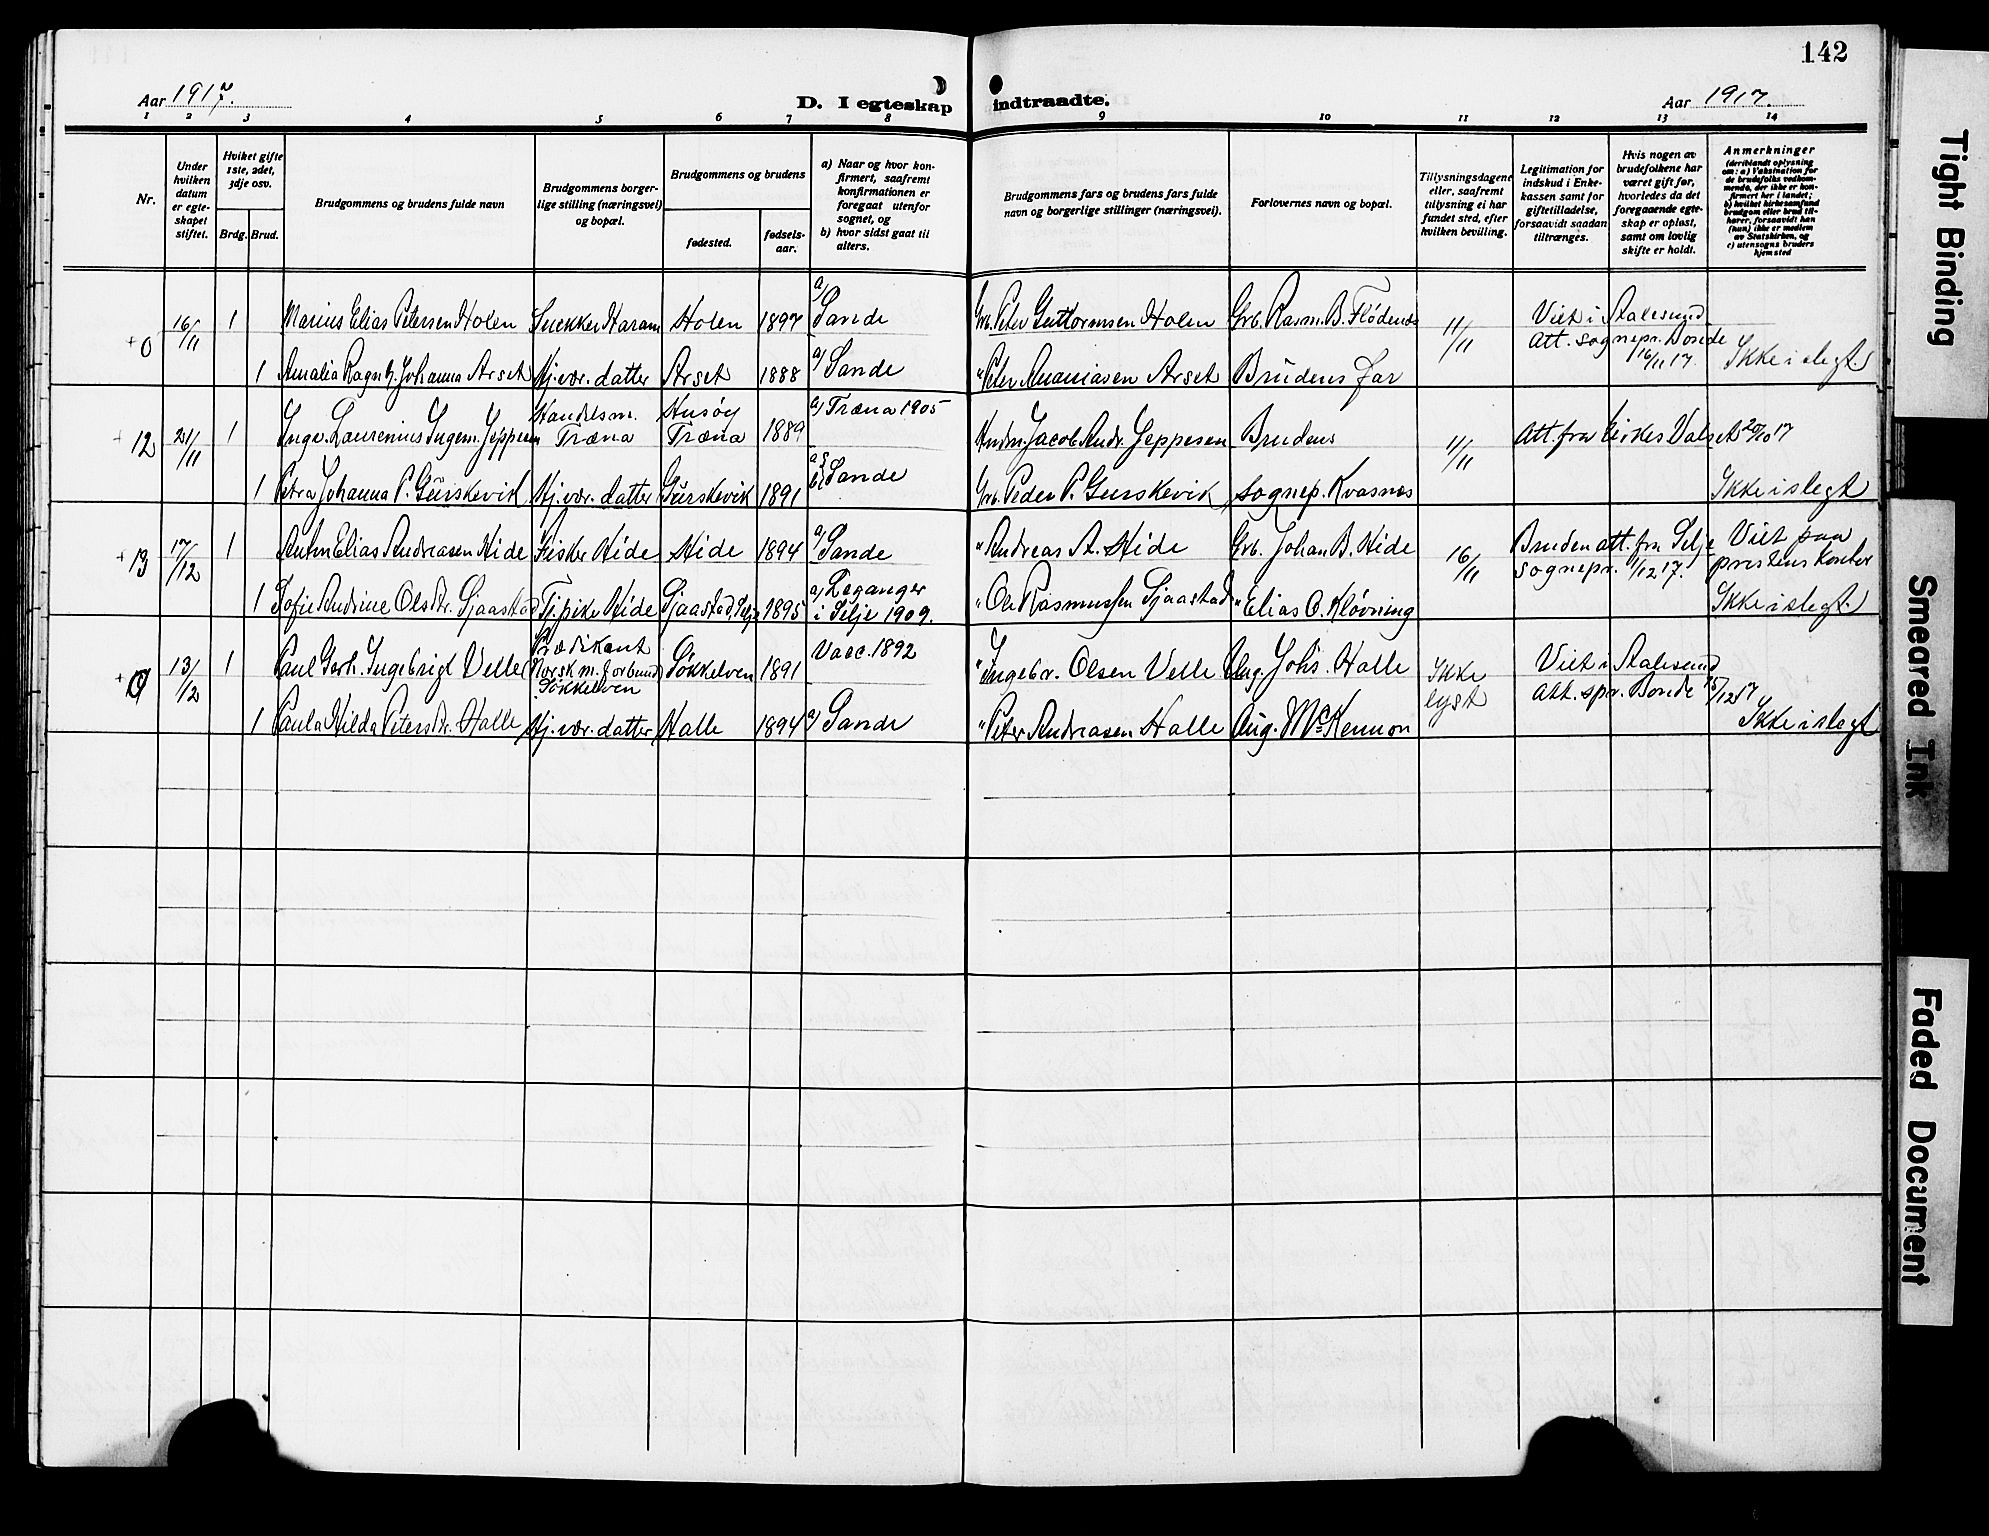 142
Aar 1917.
D. I egteskap indtraadte.
Aar 1917.
1 2 3 4 5 6 7 8 9 10 11 12 13 14
Nr.
Under hvilken datum er egteskapet stiftet.
Hviket gifte 1ste, 2det, 3dje osv.
Brdg. Brud.
Brudgommens og brudens fulde navn
Brudgommens borgerlige stilling (næringsvei) og bopæl.
Brudgommens og brudens
fødested.
fødselsaar.
a) Naar og hvor konfirmert, saafremt konfirmationen er foregaat utenfor sognet, og
b) hvor sidst gaat til alters.
Brudgommens fars og brudens fars fulde navn og borgerlige stillinger (næringsvei).
Forlovernes navn og bopæl.
Tillysningsdagene eller, saafremt tillysning ei har fundet sted, efter hvilken bevilling.
Legitimation for indskud i Enkekassen samt for giftetilladelse, forsaavidt saadan tiltrænges.
Hvis nogen av brudefolkene har været gift før, hvorledes da det foregaaende egteskap er opløst, samt om lovlig skifte er holdt.
Anmerkninger
(deriblandt oplysning om: a) Vaksination for de brudefolks vedkommende, der ikke er konfirmert her i landet; b) hvilket kirkesamfund brudgom eller brud tilhører, forsaavidt han (hun) ikke er medlem av Statskirken, og c) utensogns bruders hjemsted
+0 16/11 1 Marius Elias Petersen Holen Snekker Haram Holen 1897 a) Sande Grb. Peter Guttormsen Holen Grb. Rasm. B. Flødenes 11/11 Viet i Aalesund
Att. sognepr. Bonde 16/11 17.
1 Amalia Ragnh. Johanna Arset Hj.vær. datter Arset 1888 a) Sande " Peter Ananiasen Arset Brudens far Ikke i slegt.
+ 12 21/11 1 Ingv. Laurenius Ingem. Jeppesen Handelsm. Træna Husøy Træna 1889 a) Træna 1905 Hndm. Jacob Andr. Jeppesen Brudens 11/11 Att. fra kirkes Valset 20/10 17
1 Petra Johanna P. Gurskevik Hj.vær. datter Gurskevik 1891 a & b) Sande Grb. Peder P. Gurskevik sognep. Kvasnes Ikke i slegt
+ 13 17/12 1 Anton Elias Andreasen Hide Fisker Hide Hide 1894 a) Sande " Andreas A. Hide Grb. Johan B. Hide 16/11 Bruden att. fra Selje sognepr. 1/12 17. Viet paa prestens kontor
1 Sofie Andrine Olsdr. Sjaastad Tj.pike Hide Sjaastad, Selje 1895 a) Leganger i Selje 1909. " Ole Rasmussen Sjaastad " Elias O. Kløvning Ikke i slegt.
+ 0 13/12 1 Paul Gerh. Ingebrigt Velle Prædikant Norsk m. forbund Søkkelven Søkkelven 1891 Vacc. 1892 " Ingebr. Olsen Velle Ung. Johs. Halle Ikke lyst Viet i Aalesund
Att. spr. Bonde 15/12 17
1 Paula Hilda Petersdr. Halle Hj.vær. datter Halle 1894 a) Sande " Peter Andreasen Halle Aug. Mc Kennon Ikke i slegt
Tight Binding
Smeared Ink
Faded Document